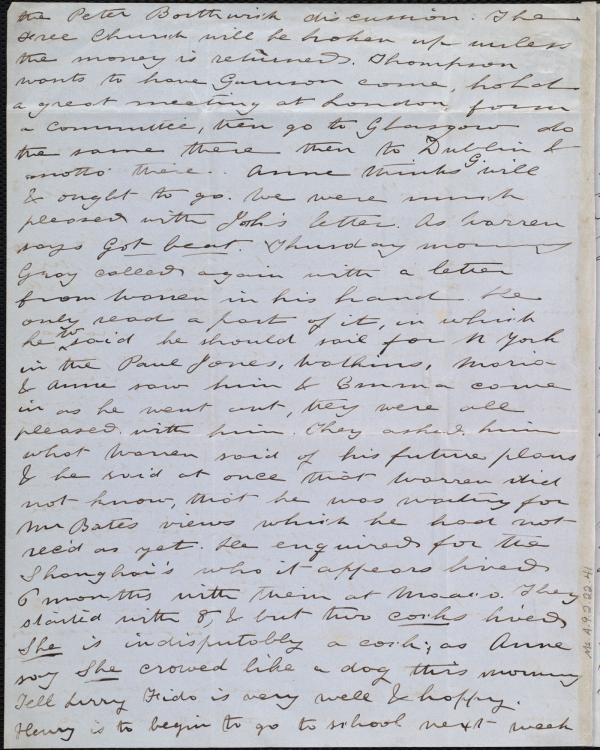 the Peter Borthwick discussion. The
Free Church will be broken up unless
the money is returned. Thompson
wants to have Garrison come, hold
a great meeting at London, form
a committee, then go to Glasgow do
the same there then to Dublin &
there. Anne thinks G will
& ought to go. We were much
pleased with Joh's letter. As Warren
says Got beat. Thursday morning
Gray called again with a letter
from Warren in his hand. He
only read a part of it, in which
he to said he should sail for N York
in the Paul Jones, Watkins, Maria
& Anne saw him & Emma come
in as he went out, they were all
pleased with him. They asked him
what Warren said of his future plans
& he said at once that Warren did
not know, that he was waiting for
Mr Bates views which he had not
rec'd as yet. He enquired for the
Shanghai's who it appears lived
6 months with them at Macao. They
started with 8, & but two cocks lived
She is indisputably a cock; as Anne
say She crowed like a dog this morning
Tell Lizzy Fido is very well & happy.
Henry is to begin to go to school next week
Ms. A.9.2.22.41